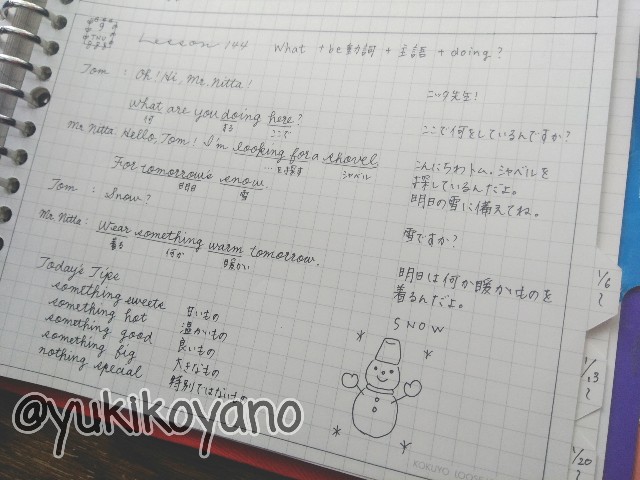 9
THU
Lesson 144
What + be動詞 + 主語 + doing?
Tom : Oh! Hi, Mr. Nitta!
ニッタ先生!
What are you doing here?
何 する ここで
ここで何をしているんですか?
Mr. Nitta: Hello, Tom! I'm looking for a shovel
…を探す シャベル
こんにちわトム。シャベルを
探しているんだよ。
For tomorrow's snow.
明日の 雪
明日の雪に備えてね。
Tom : Snow?
雪ですか?
Mr. Nitta: Wear something warm tomorrow.
着る 何か 暖かい
明日は何か暖かいものを
着るんだよ。
Today's Tips
something sweets 甘いもの
something hot 温かいもの
something good 良いもの
something big 大きなもの
nothing special 特別ではないもの
SNOW
1/6
~
1/13
~
1/20
~
KOKUYO LOOSE
@yukikoyano